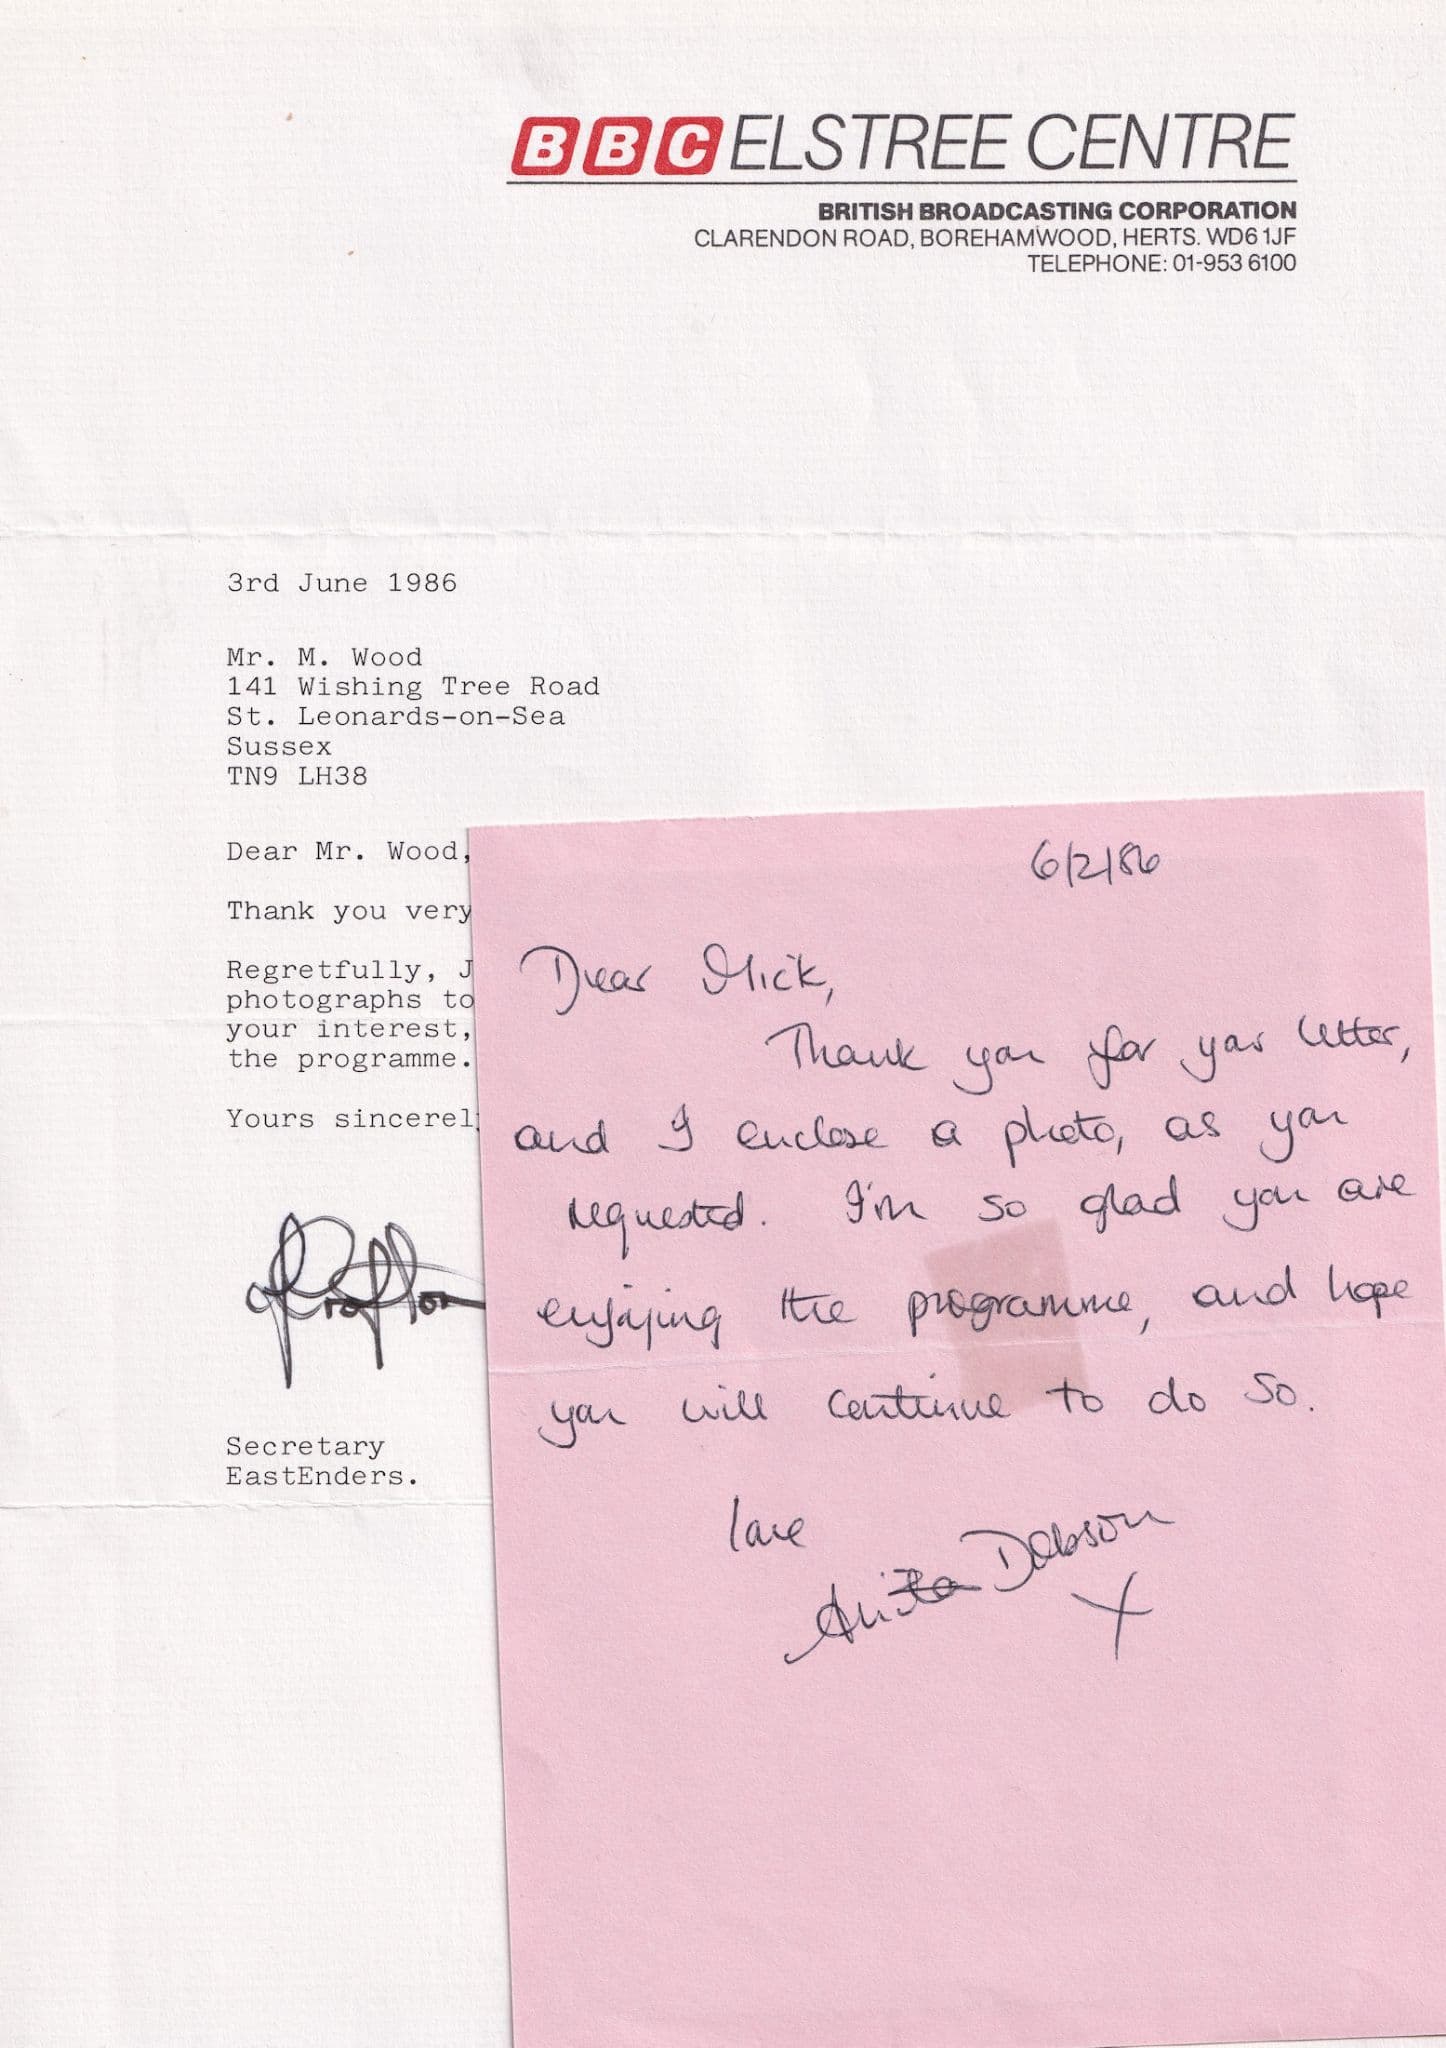 BBC ELSTREE CENTRE
BRITISH BROADCASTING CORPORATION
CLARENDON ROAD, BOREHAMWOOD, HERTS. WD6 1JF
TELEPHONE: 01-953 6100
3rd June 1986
Mr. M. Wood
141 Wishing Tree Road
St. Leonards-on-Sea
Sussex
TN9 LH38
Dear Mr. Wood,
Thank you very
Regretfully, J
photographs to
your interest,
the programme.
Yours sincerel
Secretary
EastEnders.
6/2/86
Dear Mick,
Thank you for your letter,
and I enclose a photo, as you
requested. I'm so glad you are
enjoying the programme, and hope
you will continue to do so.
love
Anita Dobson
X